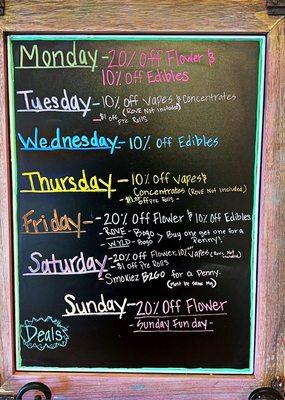 Monday - 20% Off Flower &
10% Off Edibles
Tuesday - 10% Off Vapes & Concentrates
(Rove Not Included)
- $1 off Pre Rolls -
Wednesday - 10% Off Edibles
Thursday - 10% Off Vapes &
Concentrates (Rove Not Included)
- $1.00 off Pre Rolls -
Friday - 20% Off Flower & 10% Off Edibles
- ROVE - Bogo
- WYLD - Bogo > Buy one get one for a Penny!
Saturday - 20% Off Flower, 10% Off Vapes (Rove Not Included)
- $1 off Pre Rolls
- Smokiez B2GO for a Penny.
(Must be same mg)
Sunday - 20% Off Flower
- Sunday Funday -
Deals